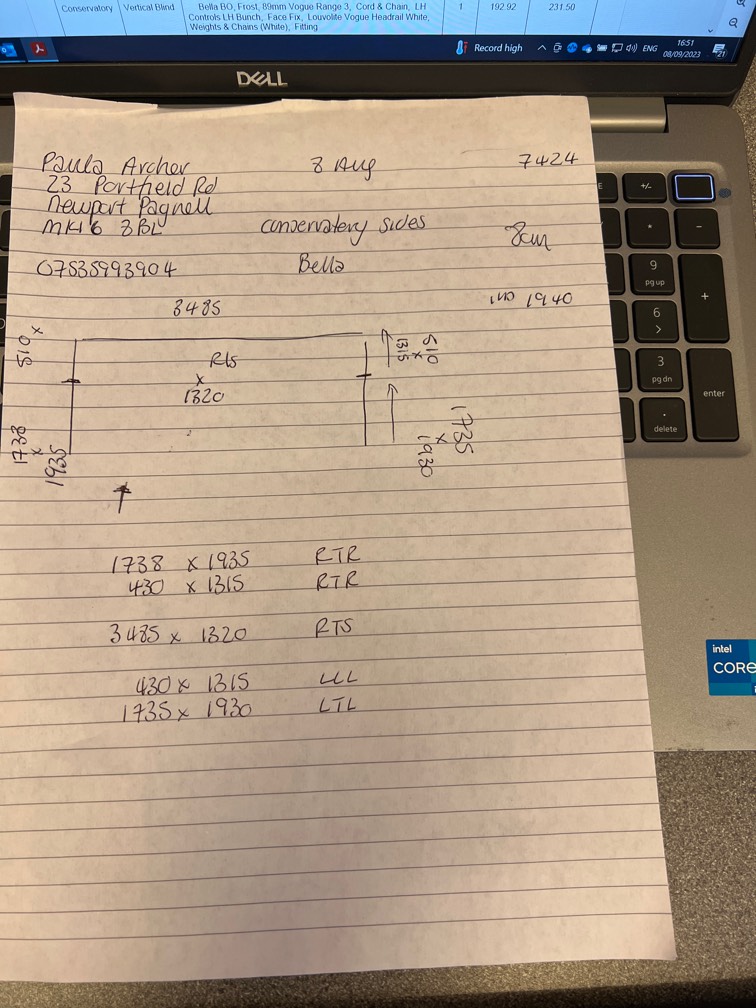 Conservatory Vertical Blind Bella BO, Frost, 89mm Vogue Range 3, Cord & Chain, LH 1 192.92 231.50
Controls LH Bunch, Face Fix, Louvolite Vogue Headrail White,
Weights & Chains (White), Fitting
Record high ENG 16:51
08/09/2023 21
DELL
Paula Archer 8 Aug 7424
23 Portfield Rd
Newport Pagnell
MK16 8BL conservatory sides 8cm
07535993904 Bella
3485 1940
510 x
510 x 1315
x
1320
1738 x 1935
1735 x 1930
1738 x 1935 RTR
430 x 1315 RTR
3485 x 1320 RTS
430 x 1315 LLL
1735 x 1930 LTL
E +/-
* -
9 pg up +
6 >
3 pg dn enter
. delete
intel
CORE